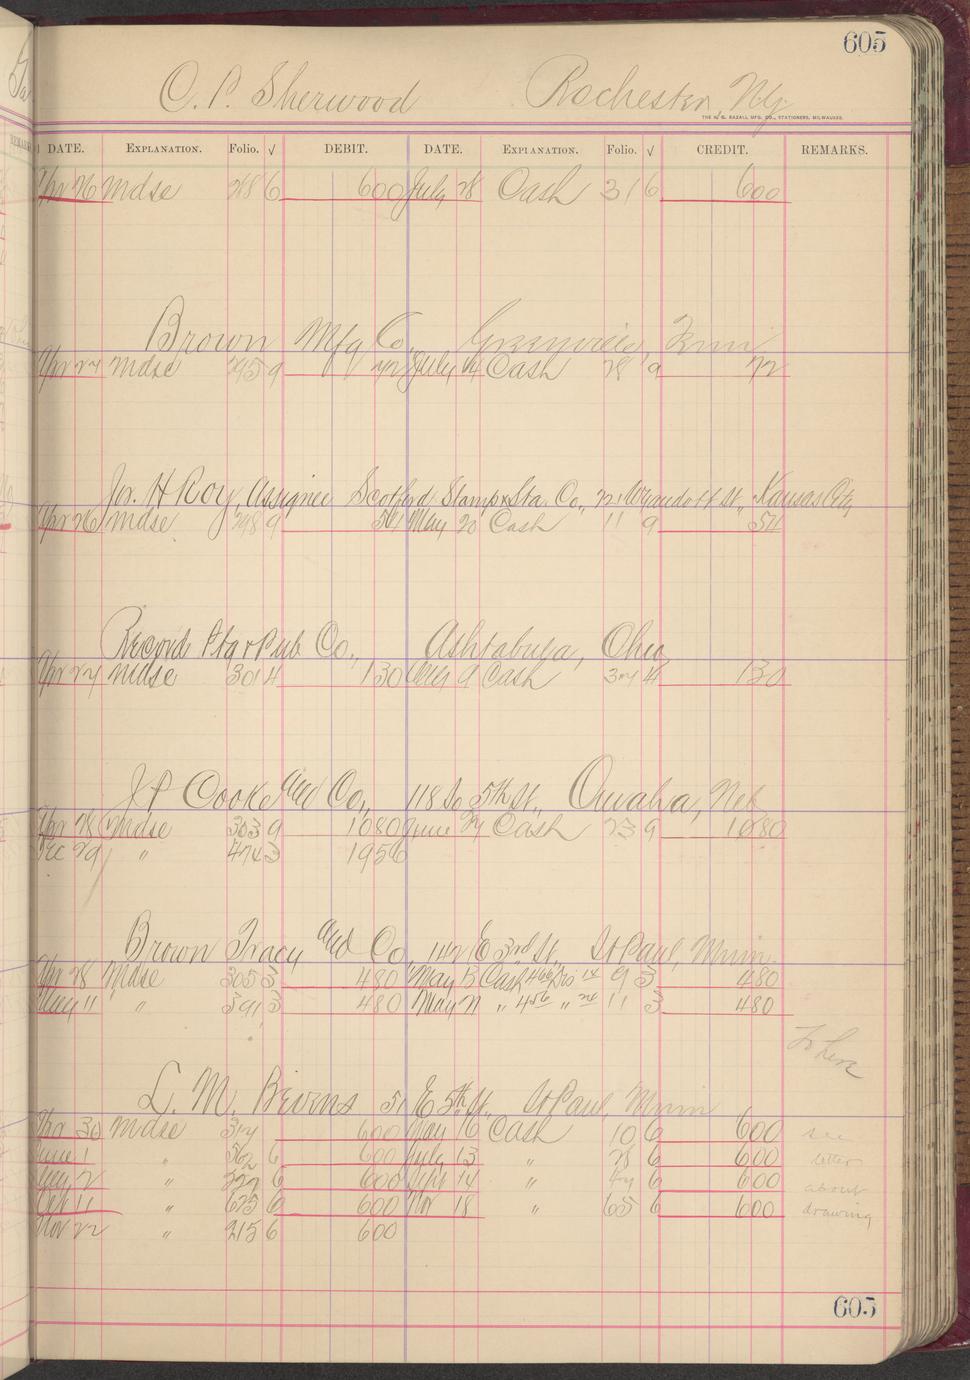 605
C. P. Sherwood Rochester, Ny
THE H. G. RAZALL MFG. CO., STATIONERS, MILWAUKEE.
DATE. EXPLANATION. Folio. √ DEBIT. DATE. EXPLANATION. Folio. √ CREDIT. REMARKS.
Apr 26 Mdse 286 600 July 28 Cash 31 6 600
Brown Mfg Co., Greenville, Tenn
Apr 27 Mdse 295 9 72 July 14 Cash 28 9 72
Jos. H Roy, Assignee Scotford Stamp & Sta. Co., Wyandott St., Kansas City
Apr 26 Mdse 298 9 54 May 20 Cash 11 9 54
Record Sta & Pub Co., Ashtabula, Ohio
Apr 27 Mdse 301 4 130 Aug 9 Cash 37 4 130
J P Cooke and Co., 118 So 5th St., Omaha, Neb
Apr 28 Mdse 303 9 1080 June 27 Cash 23 9 1080
Dec 29 " 474 3 1956
Brown Tracy and Co., 142 E 3rd St., St Paul, Minn.
Apr 28 Mdse 305 3 480 May 13 Cash 466 Dis 14 9 3 480
May 11 " 391 3 480 May 21 " 456 " 24 11 3 480
To here
L. M. Beirns 51 E 5th St., St Paul, Minn
Apr 30 Mdse 317 600 May 16 Cash 10 6 600 see
June 1 " 562 6 600 July 13 " 28 6 600 letter
Aug 2 " 222 6 600 Sept 14 " 47 6 600 about
Oct 11 " 675 6 600 Nov 18 " 65 6 600 drawing
Nov 22 " 215 6 600
605